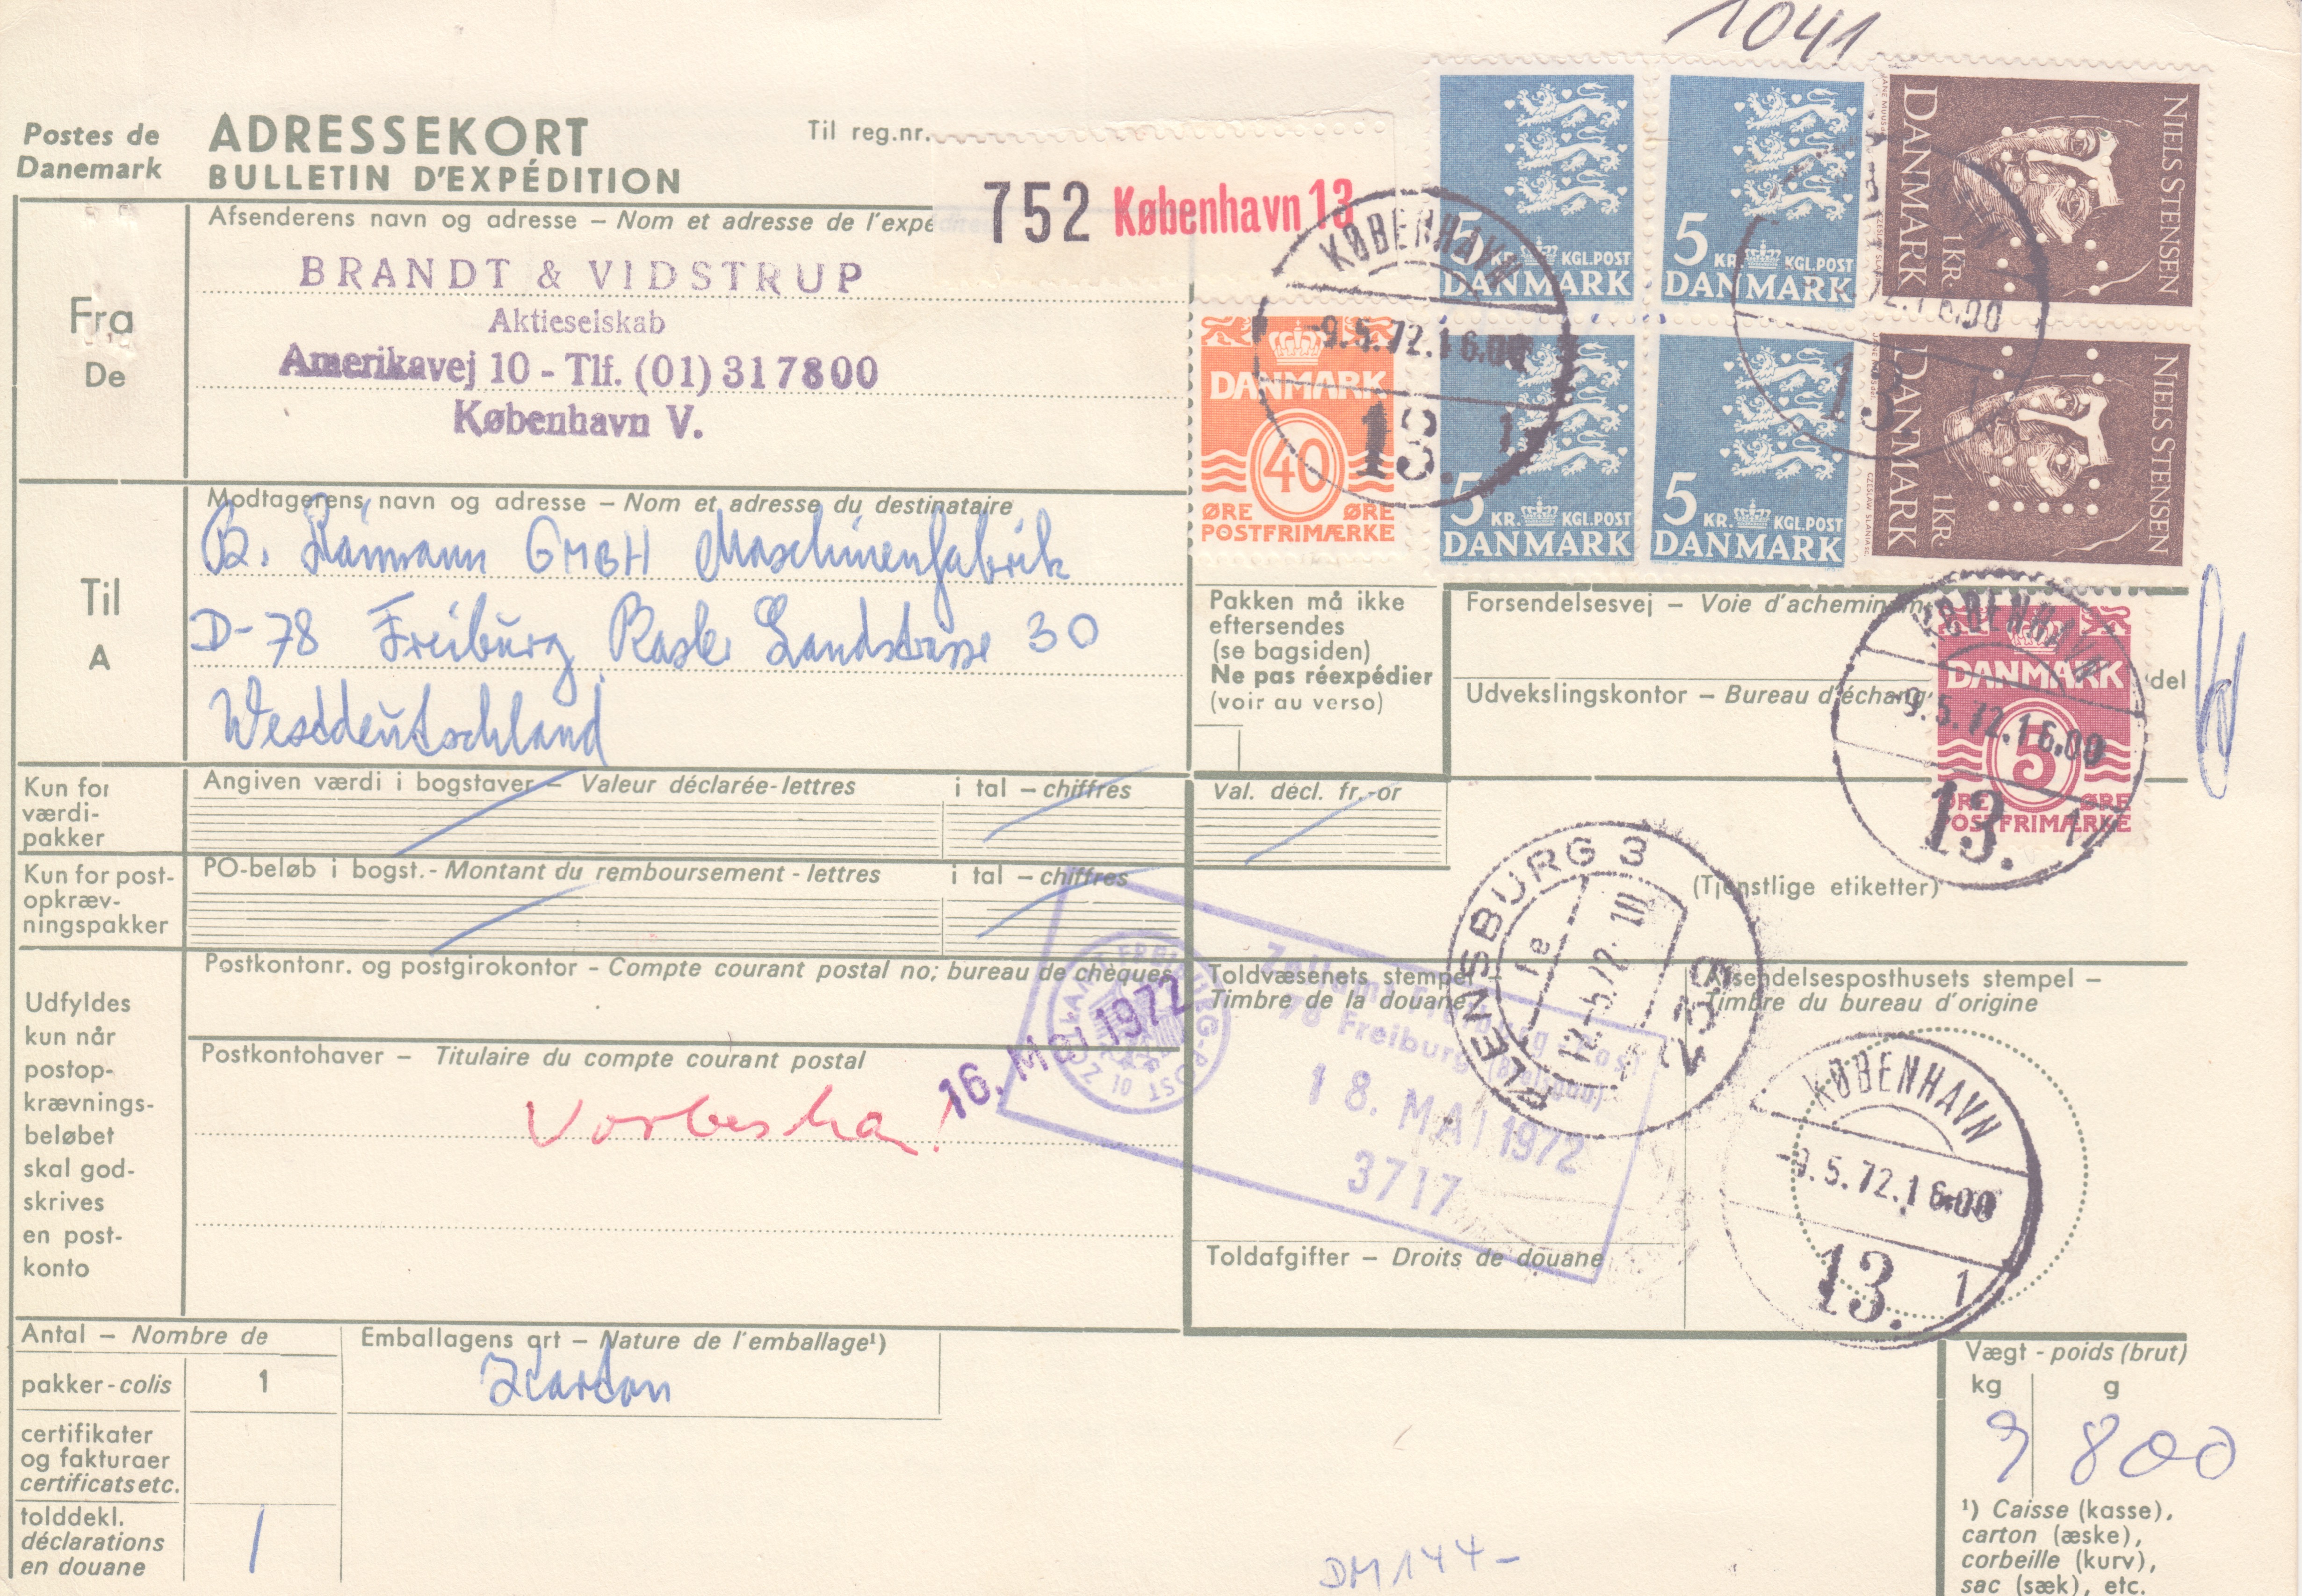 1041
Postes de
Danemark
ADRESSEKORT
BULLETIN D'EXPÉDITION
Til reg.nr.
752 København 13
Fra
De
Afsenderens navn og adresse – Nom et adresse de l'expé
BRANDT & VIDSTRUP
Aktieselskab
Amerikavej 10 - Tlf. (01) 317800
København V.
5 KR. KGL.POST
DANMARK
5 KR. KGL.POST
DANMARK
NIELS STENSEN
1 KR.
DANMARK
DANMARK
40
ØRE ØRE
POSTFRIMÆRKE
5 KR. KGL.POST
DANMARK
5 KR. KGL.POST
DANMARK
NIELS STENSEN
1 KR.
DANMARK
CZESLAW SLANIA SC.
KØBENHAVN
-9.5.72.16.00
13.
72.16.00
13.
Til
A
Modtagerens navn og adresse – Nom et adresse du destinataire
B. Raimann GMBH Maschinenfabrik
D-78 Freiburg Basler Landstrasse 30
Westdeutschland
Pakken må ikke
eftersendes
(se bagsiden)
Ne pas réexpédier
(voir au verso)
Forsendelsesvej – Voie d'achemin
Udvekslingskontor – Bureau d'échang
del
DANMARK
5
ØRE ØRE
POSTFRIMÆRKE
KØBENHAVN
-9.5.72.16.00
13. 1
Kun for
værdi-
pakker
Angiven værdi i bogstaver – Valeur déclarée-lettres
i tal – chiffres
Val. décl. fr.-or
Kun for post-
opkræv-
ningspakker
PO-beløb i bogst.- Montant du remboursement - lettres
i tal – chiffres
(Tjenstlige etiketter)
Udfyldes
kun når
postop-
krævnings-
beløbet
skal god-
skrives
en post-
konto
Postkontonr. og postgirokontor - Compte courant postal no; bureau de chèques
Postkontohaver – Titulaire du compte courant postal
16. Mai 1972
Toldvæsenets stempel
Timbre de la douane
Zollamt Freiburg - Post
78 Freiburg (Breisgau)
18. MAI 1972
3717
FLENSBURG 3
fe
12.-5.72. 10
239
Afsendelsesposthusets stempel –
Timbre du bureau d'origine
KØBENHAVN
-9.5.72.16.00
13. 1
Toldafgifter – Droits de douane
Antal – Nombre de
pakker - colis
1
certifikater
og fakturaer
certificats etc.
tolddekl.
déclarations
en douane
1
Emballagens art – Nature de l'emballage¹)
Karton
Vægt - poids (brut)
kg g
9 800
¹) Caisse (kasse),
carton (æske),
corbeille (kurv),
sac (sæk), etc.
DM 144-